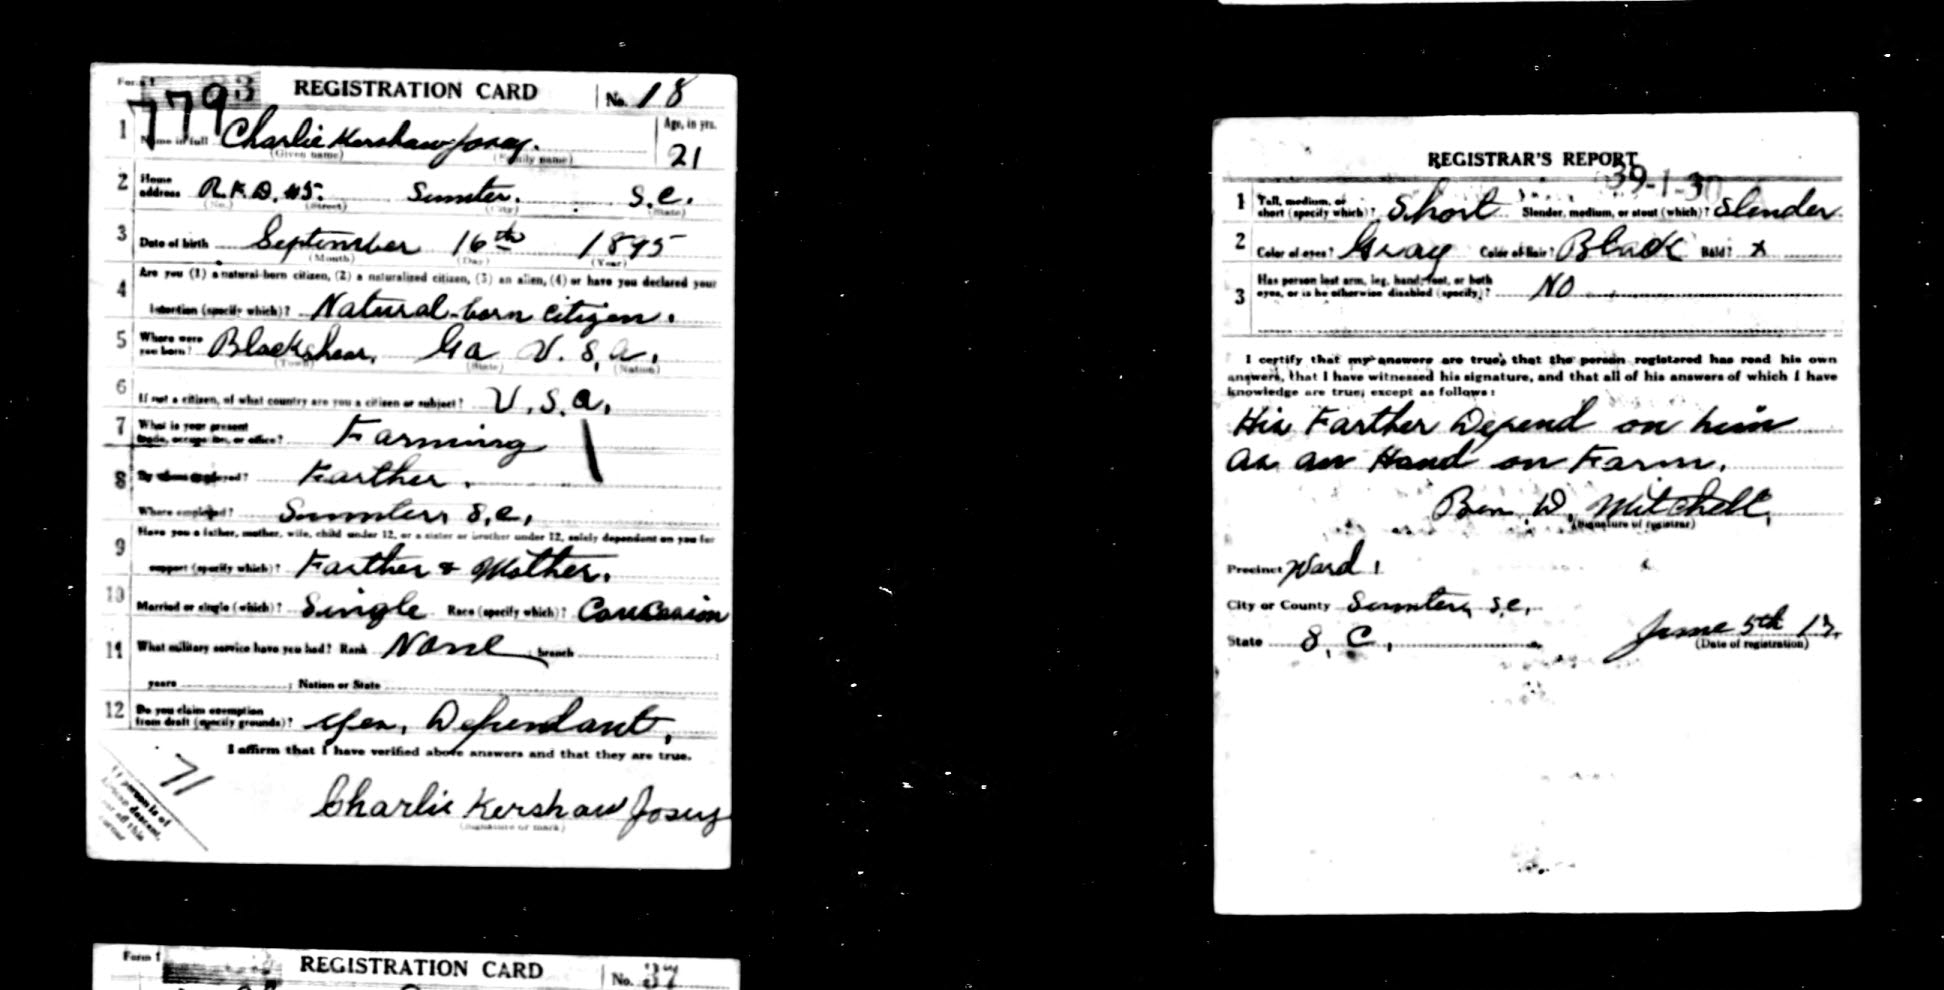 Form 1
7793 REGISTRATION CARD No. 18
1 Name in full Charlie Kershaw Josey. Age, in yrs.
(Given name) (Family name) 21
2 Home address R.F.D. #5. Sumter. S.C.
(No.) (Street) (City) (State)
3 Date of birth September 16th 1895
(Month) (Day) (Year)
4 Are you (1) a natural-born citizen, (2) a naturalized citizen, (3) an alien, (4) or have you declared your
intention (specify which)? Natural-born citizen.
5 Where were you born? Blackshear, Ga U.S.A.
(Town) (State) (Nation)
6 If not a citizen, of what country are you a citizen or subject? U.S.A.
7 What is your present trade, occupation, or office? Farming
8 By whom employed? Farther.
Where employed? Sumter, S.C.,
9 Have you a father, mother, wife, child under 12, or a sister or brother under 12, solely dependent on you for
support (specify which)? Farther & Mother.
10 Married or single (which)? Single Race (specify which)? Caucasion
11 What military service have you had? Rank None branch
years ; Nation or State
12 Do you claim exemption from draft (specify grounds)? Yes, Dependant,
I affirm that I have verified above answers and that they are true.
71
Charlie Kershaw Josey
(Signature or mark)
If person is of
African descent,
cut off this
corner
Form 1 REGISTRATION CARD No. 37
REGISTRAR'S REPORT
39-1-30
1 Tall, medium, or short (specify which)? Short Slender, medium, or stout (which)? Slender
2 Color of eyes? Gray Color of hair? Black Bald? x
3 Has person lost arm, leg, hand, foot, or both
eyes, or is he otherwise disabled (specify)? NO
I certify that my answers are true, that the person registered has read his own
answers, that I have witnessed his signature, and that all of his answers of which I have
knowledge are true, except as follows:
His Farther Depend on him
as an Hand on Farm.
Ben. W. Mitchell,
(Signature of registrar)
Precinct Ward 1
City or County Sumter, S.C.
State S.C., June 5th 17.
(Date of registration)